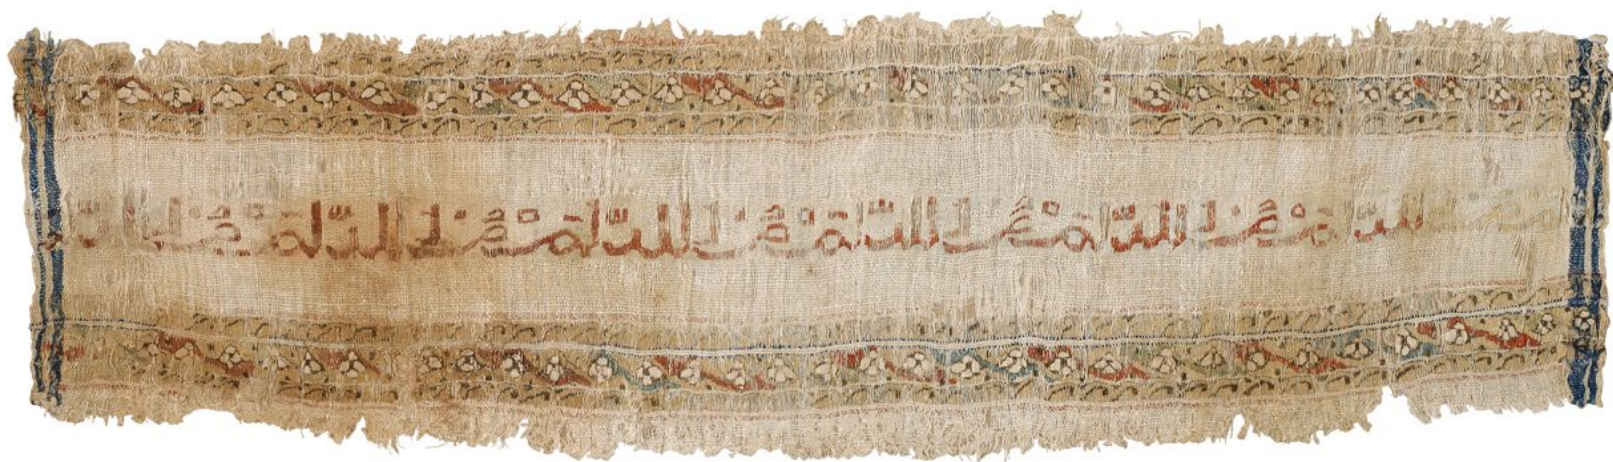 نصر من الله نصر من الله نصر من الله نصر من الله نصر من الله نصر من الله